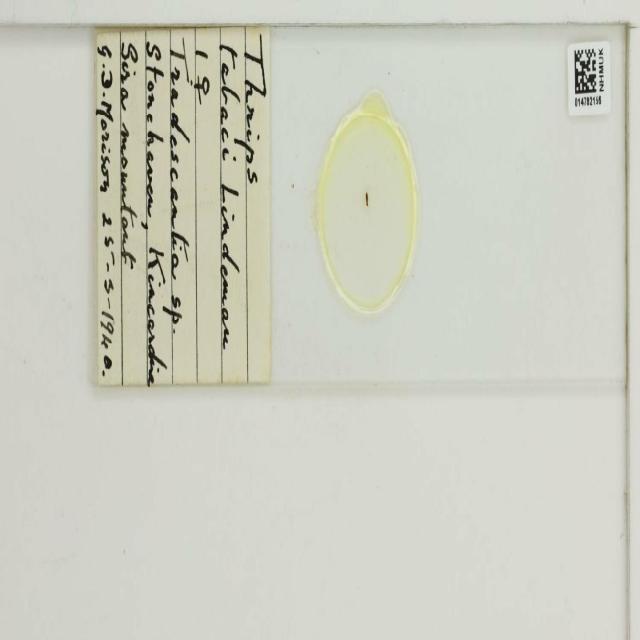 Thrips
tabaci Lindeman
1 ♀
Tradescantia sp.
Stonehaven, Kincardine
Gina mountant
G. D. Morison 25-5-1940.
NHMUK